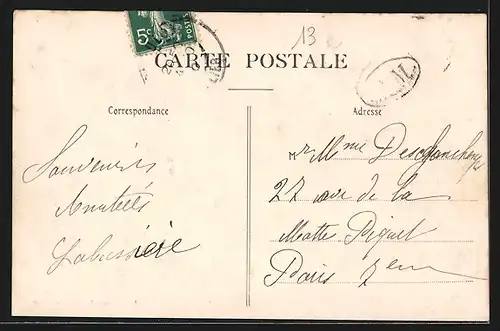 5c
13
CARTE POSTALE
Correspondance
Adresse
Souvenirs
Amitiés
Labussière
Mr Mme
27 av de la
Motte Piquet
Paris 7em